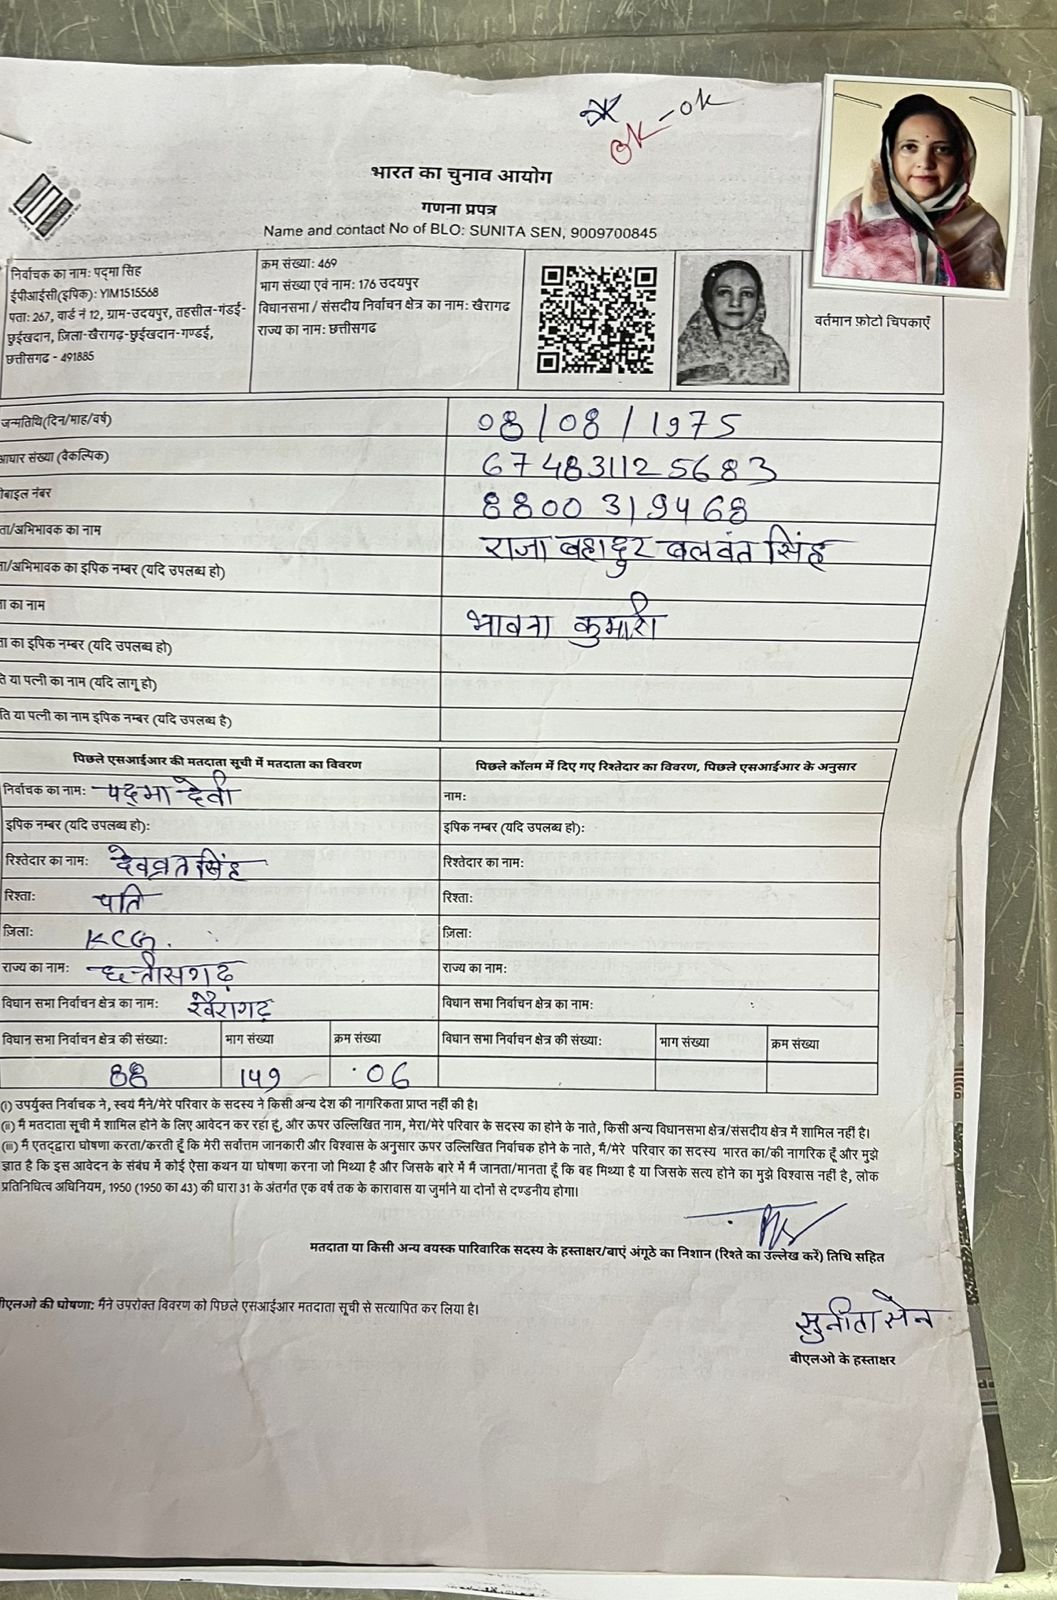 OK - OK
भारत का चुनाव आयोग
गणना प्रपत्र
Name and contact No of BLO: SUNITA SEN, 9009700845
निर्वाचक का नाम: पद्मा सिंह
ईपीआईसी(इपिक): YIM1515568
पता: 267, वार्ड नं 12, ग्राम-उदयपुर, तहसील-गंडई-
छुईखदान, ज़िला-खैरागढ़-छुईखदान-गण्डई,
छत्तीसगढ - 491885
क्रम संख्या: 469
भाग संख्या एवं नाम: 176 उदयपुर
विधानसभा / संसदीय निर्वाचन क्षेत्र का नाम: खैरागढ
राज्य का नाम: छत्तीसगढ
वर्तमान फ़ोटो चिपकाएँ
जन्मतिथि(दिन/माह/वर्ष) 08/08/1975
आधार संख्या (वैकल्पिक) 674831125683
मोबाइल नंबर 8800319468
ता/अभिभावक का नाम राजा बहादुर बलवंत सिंह
ता/अभिभावक का इपिक नम्बर (यदि उपलब्ध हो)
ता का नाम भावना कुमारी
ता का इपिक नम्बर (यदि उपलब्ध हो)
ति या पत्नी का नाम (यदि लागू हो)
ति या पत्नी का नाम इपिक नम्बर (यदि उपलब्ध है)
पिछले एसआईआर की मतदाता सूची में मतदाता का विवरण
पिछले कॉलम में दिए गए रिश्तेदार का विवरण, पिछले एसआईआर के अनुसार
निर्वाचक का नाम: पद्मा देवी
नाम:
इपिक नम्बर (यदि उपलब्ध हो):
इपिक नम्बर (यदि उपलब्ध हो):
रिश्तेदार का नाम: देवव्रत सिंह
रिश्तेदार का नाम:
रिश्ता: पति
रिश्ता:
ज़िला: KCG.
ज़िला:
राज्य का नाम: छत्तीसगढ़
राज्य का नाम:
विधान सभा निर्वाचन क्षेत्र का नाम: खैरागढ़
विधान सभा निर्वाचन क्षेत्र का नाम:
विधान सभा निर्वाचन क्षेत्र की संख्या: भाग संख्या क्रम संख्या
विधान सभा निर्वाचन क्षेत्र की संख्या: भाग संख्या क्रम संख्या
88 149 06
(i) उपर्युक्त निर्वाचक ने, स्वयं मैंने/मेरे परिवार के सदस्य ने किसी अन्य देश की नागरिकता प्राप्त नहीं की है।
(ii) मैं मतदाता सूची में शामिल होने के लिए आवेदन कर रहा हूँ, और ऊपर उल्लिखित नाम, मेरा/मेरे परिवार के सदस्य का होने के नाते, किसी अन्य विधानसभा क्षेत्र/संसदीय क्षेत्र में शामिल नहीं है।
(iii) मैं एतद्द्वारा घोषणा करता/करती हूँ कि मेरी सर्वोत्तम जानकारी और विश्वास के अनुसार ऊपर उल्लिखित निर्वाचक होने के नाते, मैं/मेरे परिवार का सदस्य भारत का/की नागरिक हूँ और मुझे
ज्ञात है कि इस आवेदन के संबंध में कोई ऐसा कथन या घोषणा करना जो मिथ्या है और जिसके बारे में मैं जानता/मानता हूँ कि वह मिथ्या है या जिसके सत्य होने का मुझे विश्वास नहीं है, लोक
प्रतिनिधित्व अधिनियम, 1950 (1950 का 43) की धारा 31 के अंतर्गत एक वर्ष तक के कारावास या जुर्माने या दोनों से दण्डनीय होगा।
मतदाता या किसी अन्य वयस्क पारिवारिक सदस्य के हस्ताक्षर/बाएं अंगूठे का निशान (रिश्ते का उल्लेख करें) तिथि सहित
बीएलओ की घोषणा: मैंने उपरोक्त विवरण को पिछले एसआईआर मतदाता सूची से सत्यापित कर लिया है।
सुनीता सेन
बीएलओ के हस्ताक्षर